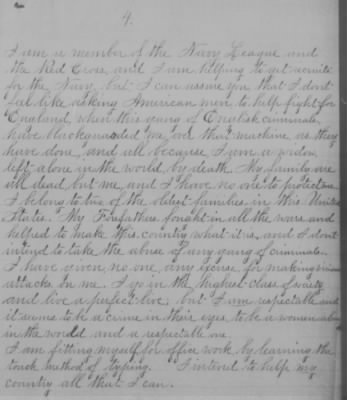 4.
I am a member of the Navy League and
the Red Cross, and I am helping to get recruits
for the Navy, but I can assure you that I don't
feel like asking American men to help fight for
England, when this gang of English criminals
have blackguarded me over that machine as they
have done, and all because I am a widow
left alone in the world by death. My family are
all dead but me, and I have no one to protect me.
I belong to two of the oldest families in this United
States. My Forefathers fought in all the wars and
helped to make this country what it is, and I don't
intend to take the abuse of any gang of criminals.
I have given no one any excuse for making
attacks on me. I go in the highest class of society
and live a perfect live, but I am respectable and
it seems to be a crime in their eyes, to be a woman alone
in the world and a respectable one.
I am fitting myself for office work by learning the
touch method of typing. I intend to help my
country all that I can.